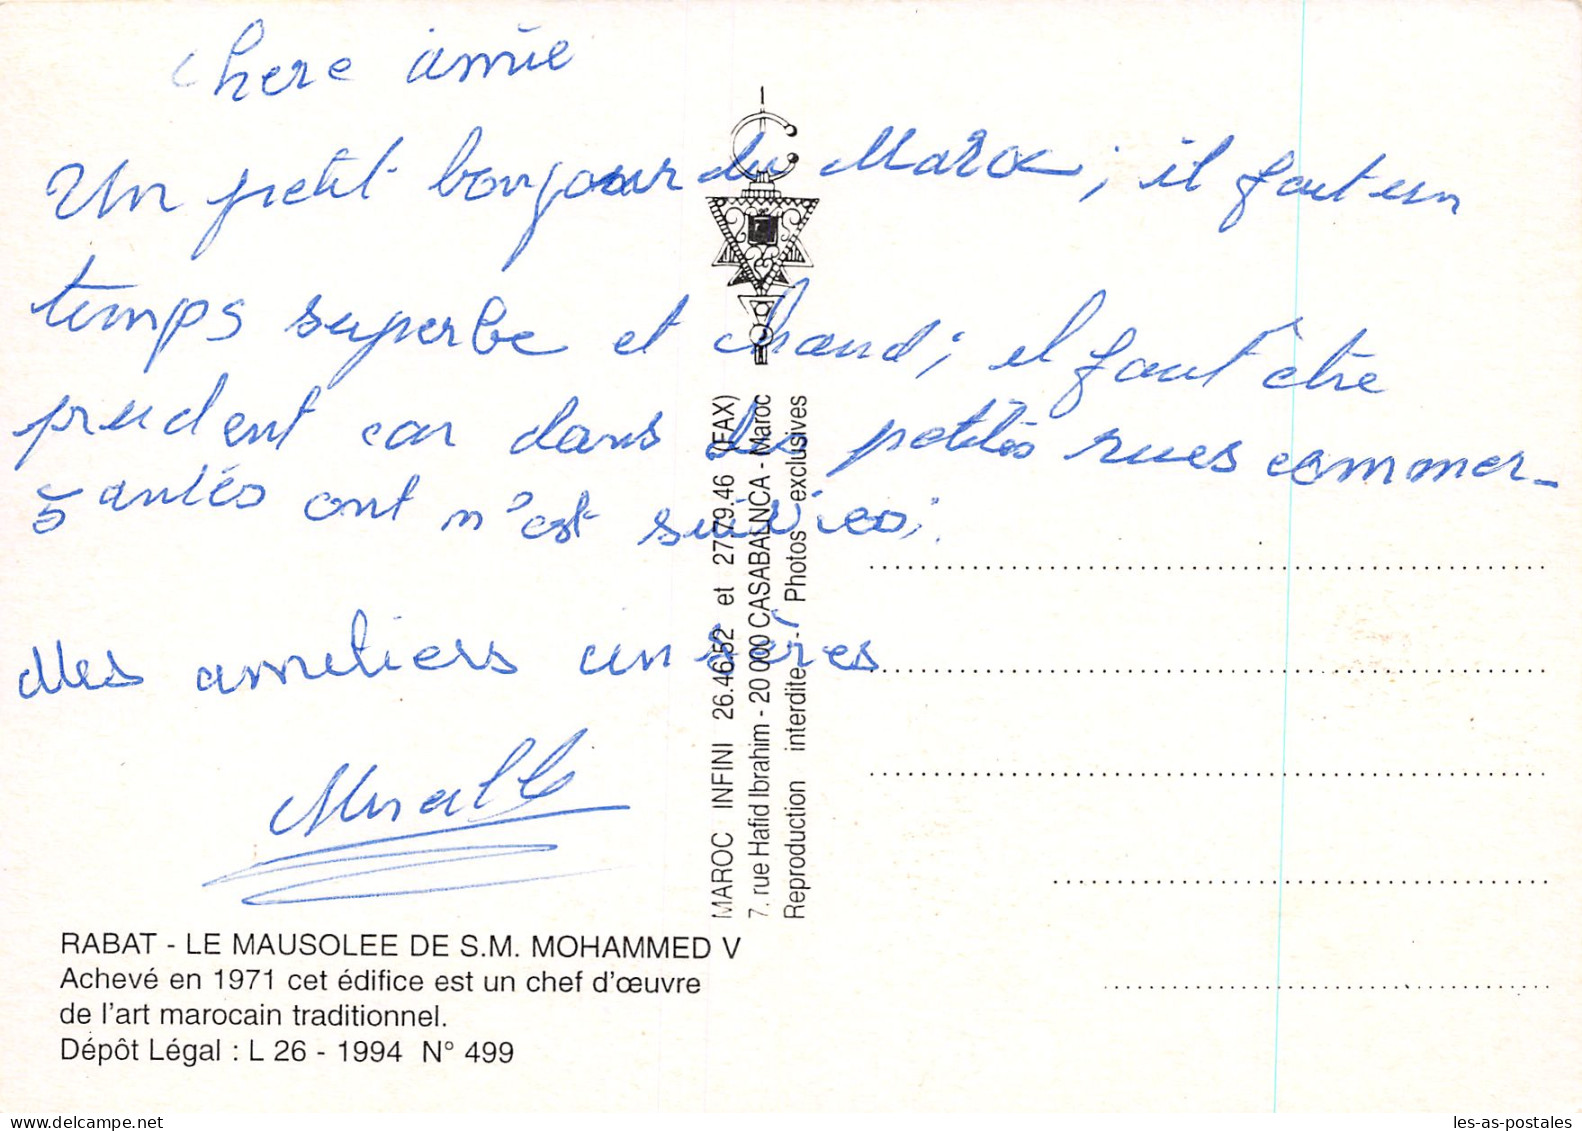 chere amie
Un petit bonjour du Maroc ; il faut un
temps superbe et chaud ; il faut être
prudent car dans les petites rues commer-
santes ont n'est suivies ;
Mes amitiers cinsères
RABAT - LE MAUSOLEE DE S.M. MOHAMMED V
Achevé en 1971 cet édifice est un chef d'œuvre
de l'art marocain traditionnel.
Dépôt Légal : L 26 - 1994 N° 499
MAROC INFINI 26.46.52 et 27.79.46 (FAX)
7, rue Hafid Ibrahim - 20 000 CASABALNCA - Maroc
Reproduction interdite - Photos exclusives
www.delcampe.net
les-as-postales